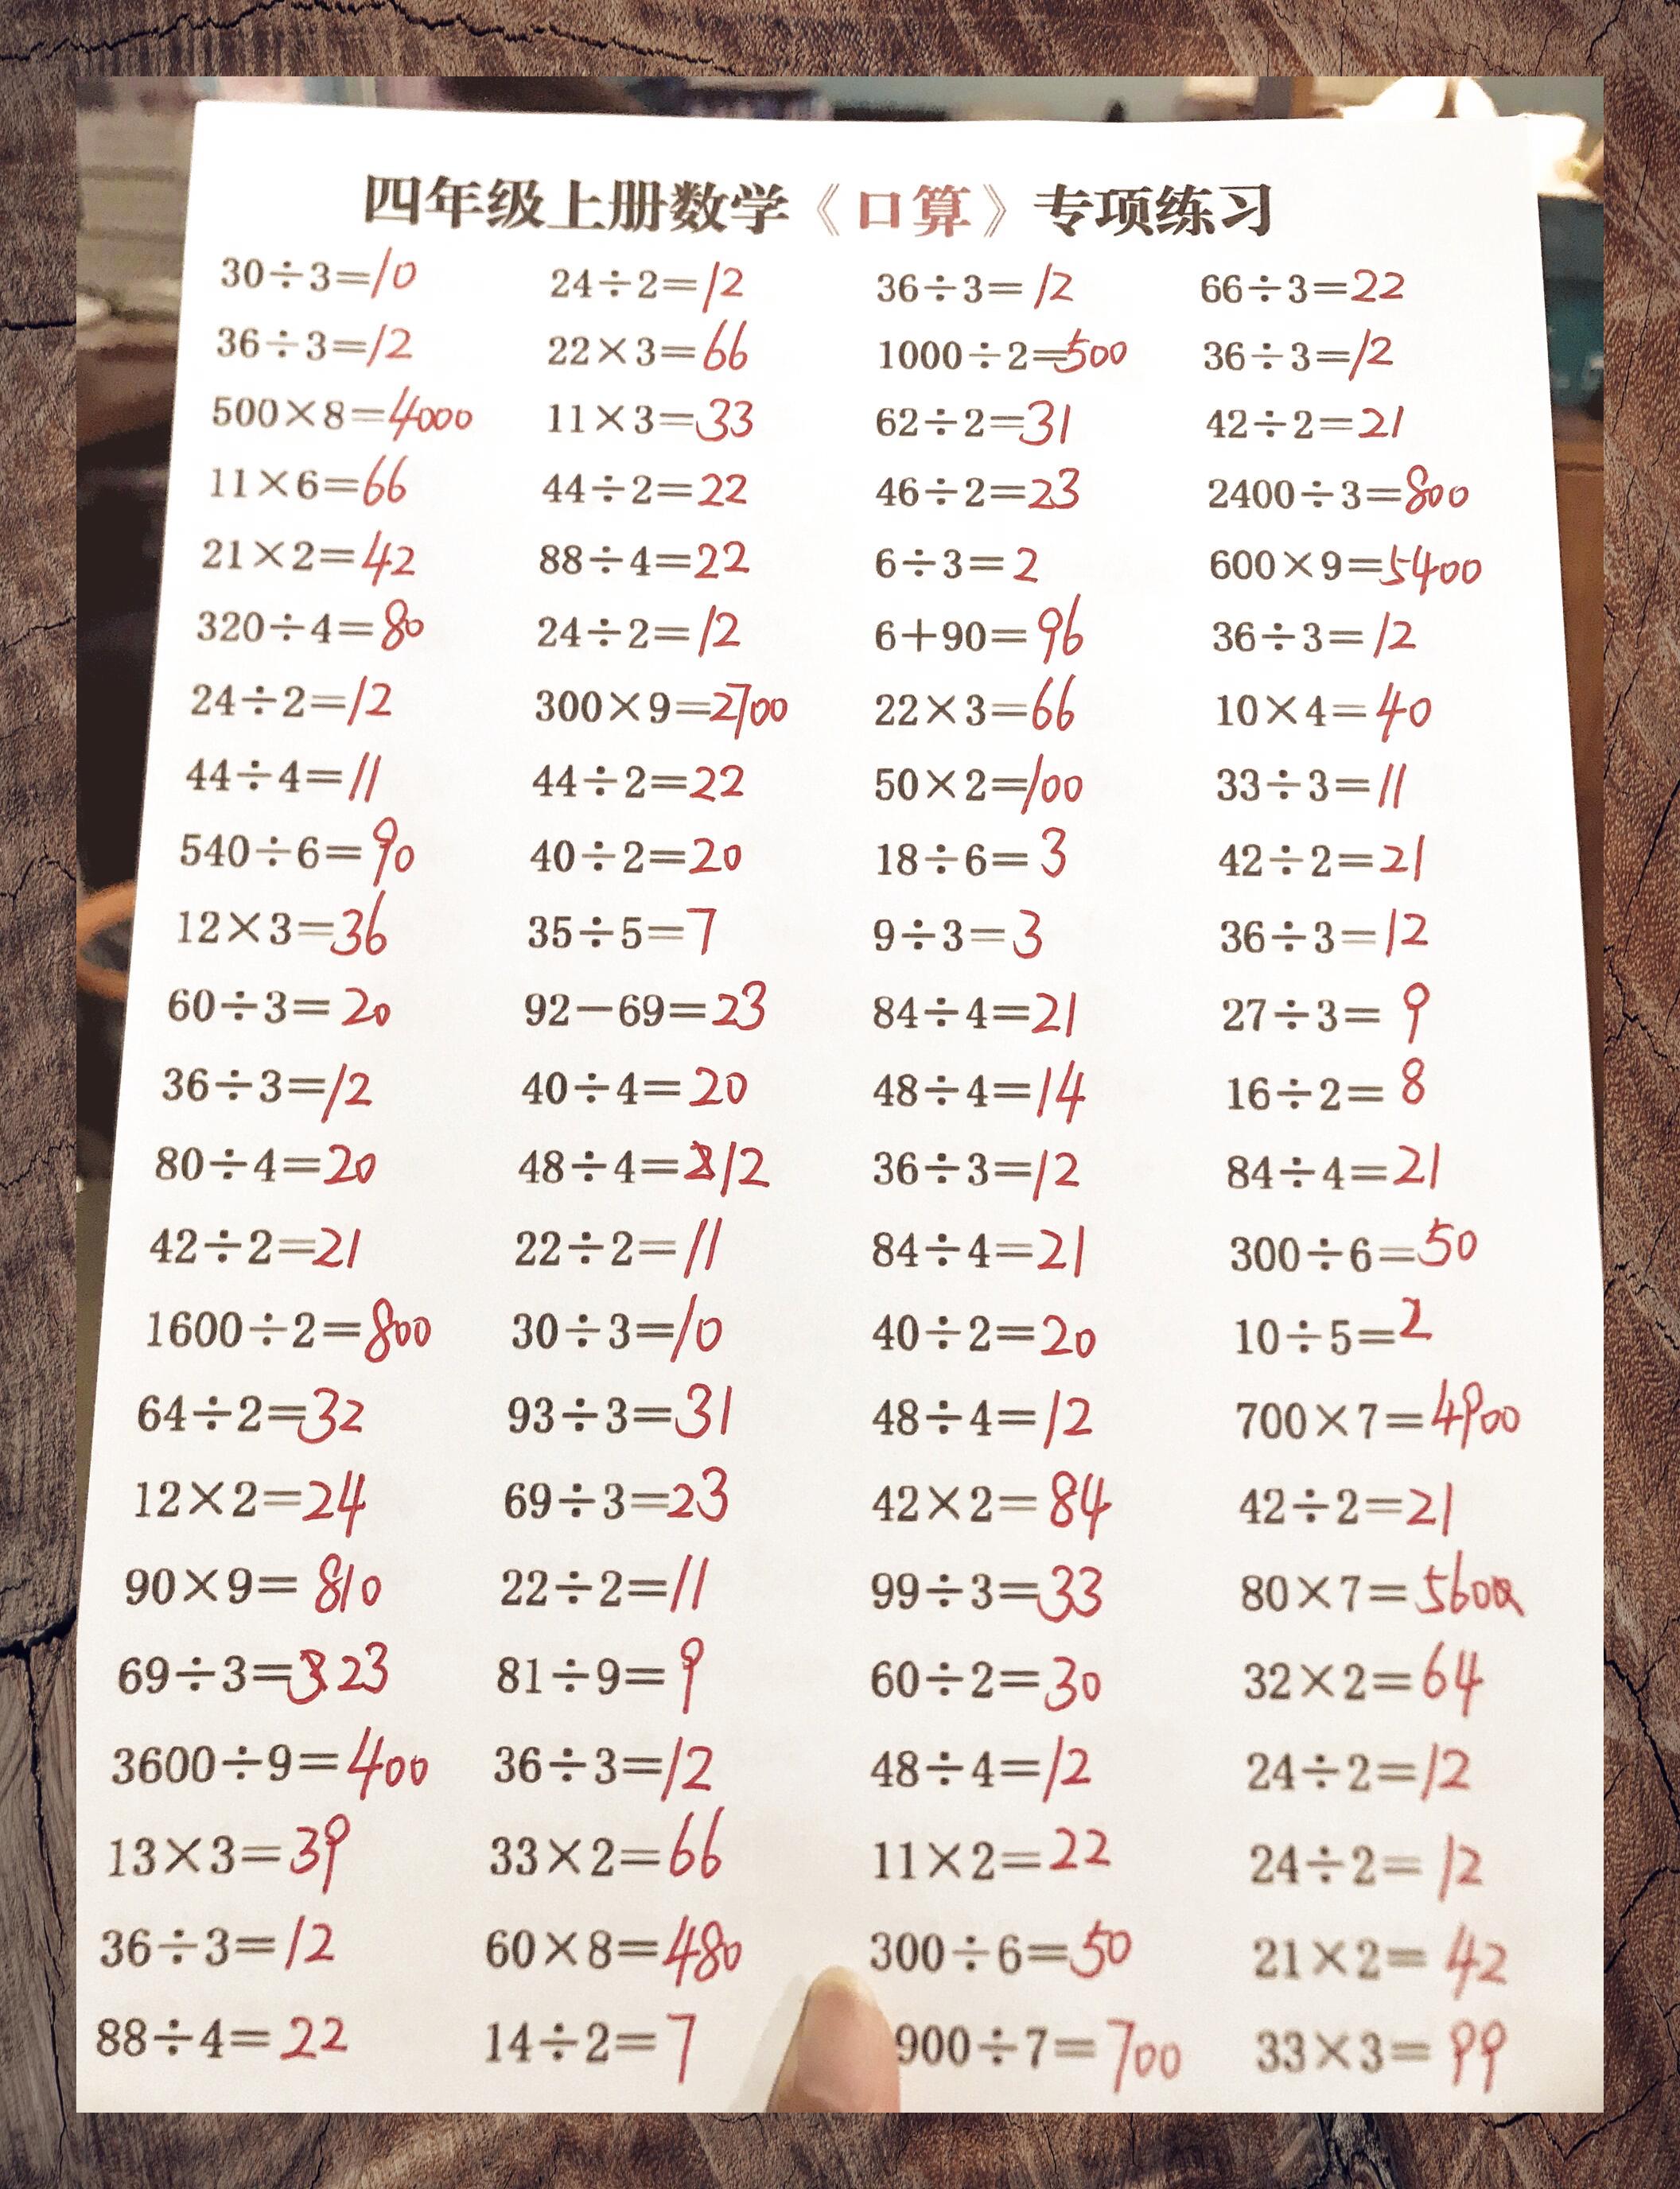 四年级上册数学《口算》专项练习
30÷3=10 24÷2=12 36÷3=12 66÷3=22
36÷3=12 22×3=66 1000÷2=500 36÷3=12
500×8=4000 11×3=33 62÷2=31 42÷2=21
11×6=66 44÷2=22 46÷2=23 2400÷3=800
21×2=42 88÷4=22 6÷3=2 600×9=5400
320÷4=80 24÷2=12 6+90=96 36÷3=12
24÷2=12 300×9=2700 22×3=66 10×4=40
44÷4=11 44÷2=22 50×2=100 33÷3=11
540÷6=90 40÷2=20 18÷6=3 42÷2=21
12×3=36 35÷5=7 9÷3=3 36÷3=12
60÷3=20 92-69=23 84÷4=21 27÷3=9
36÷3=12 40÷4=20 48÷4=14 16÷2=8
80÷4=20 48÷4=12 36÷3=12 84÷4=21
42÷2=21 22÷2=11 84÷4=21 300÷6=50
1600÷2=800 30÷3=10 40÷2=20 10÷5=2
64÷2=32 93÷3=31 48÷4=12 700×7=4900
12×2=24 69÷3=23 42×2=84 42÷2=21
90×9=810 22÷2=11 99÷3=33 80×7=560
69÷3=23 81÷9=9 60÷2=30 32×2=64
3600÷9=400 36÷3=12 48÷4=12 24÷2=12
13×3=39 33×2=66 11×2=22 24÷2=12
36÷3=12 60×8=480 300÷6=50 21×2=42
88÷4=22 14÷2=7 900÷7=700 33×3=99